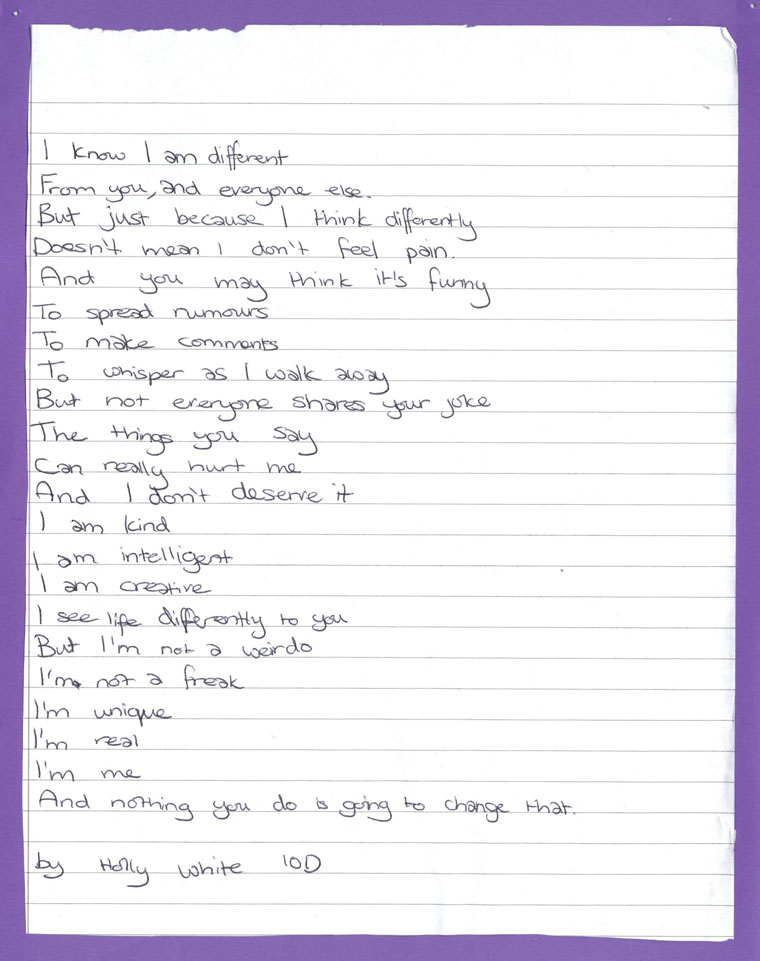 I know I am different
From you, and everyone else.
But just because I think differently
Doesn't mean I don't feel pain.
And you may think it's funny
To spread rumours
To make comments
To whisper as I walk away
But not everyone shares your joke
The things you say
Can really hurt me
And I don't deserve it
I am kind
I am intelligent
I am creative
I see life differently to you
But I'm not a weirdo
I'm not a freak
I'm unique
I'm real
I'm me
And nothing you do is going to change that.
by Holly White 10D